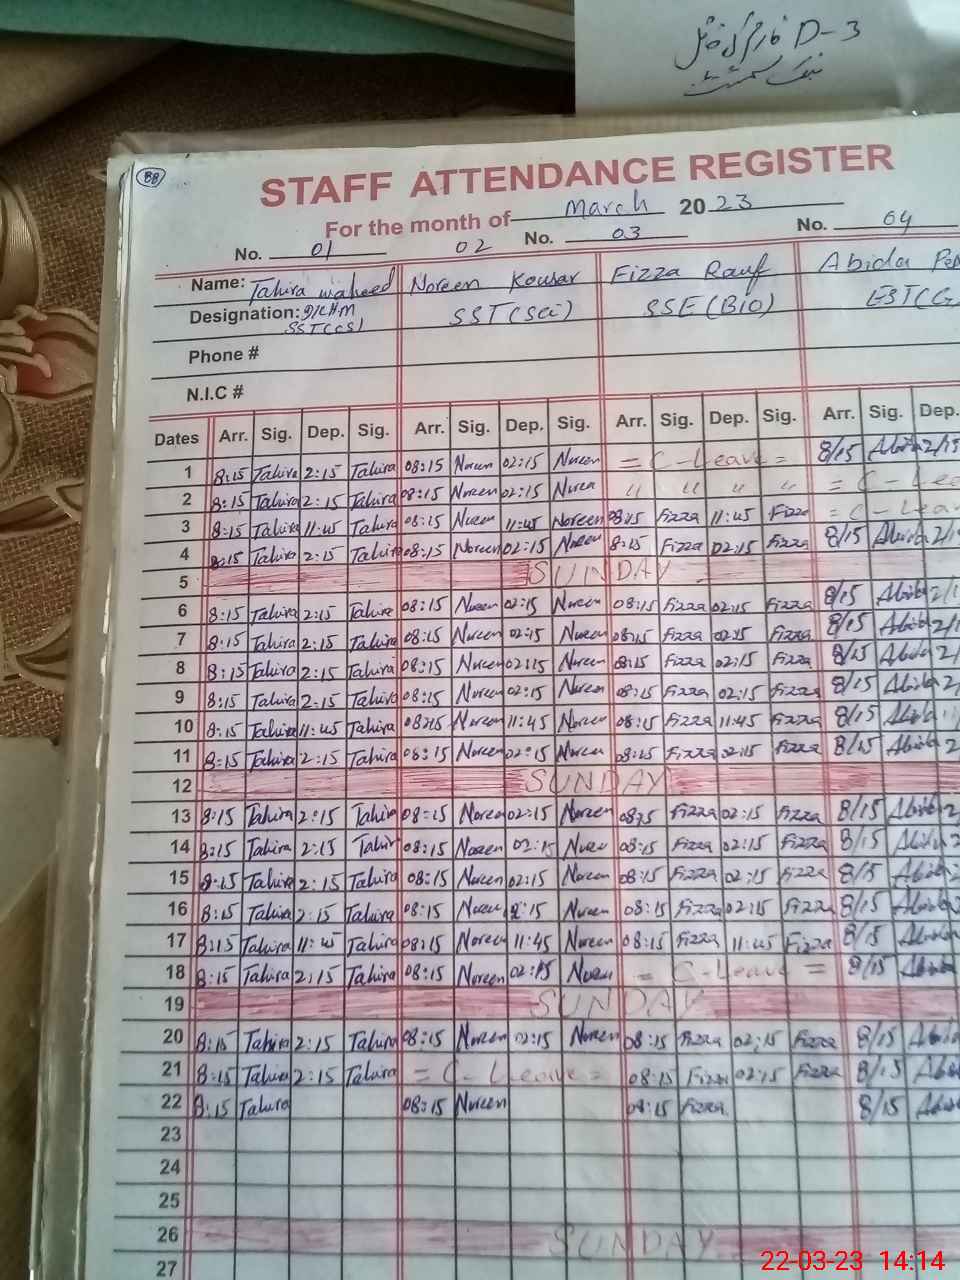 D-3
BB
STAFF ATTENDANCE REGISTER
For the month of March 20 23
No. 01 02 No. 03 No. 04
Name: Tahira waheed Noreen Kousar Fizza Rauf Abida
Designation: SST(CS) SST(Sci) SSE(BIO)
Phone #
N.I.C #
Dates Arr. Sig. Dep. Sig. Arr. Sig. Dep. Sig. Arr. Sig. Dep. Sig. Arr. Sig. Dep.
1 8:15 Tahira 2:15 Tahira 08:15 Noreen 02:15 Noreen = C-Leave = 8/15 Abida
2 8:15 Tahira 2:15 Tahira 08:15 Noreen 02:15 Noreen " " " " = C-Lea
3 8:15 Tahira 11:45 Tahira 08:15 Noreen 11:45 Noreen 08:15 Fizza 11:45 Fizza = C-Leav
4 8:15 Tahira 2:15 Tahira 08:15 Noreen 02:15 Noreen 8:15 Fizza 02:15 Fizza 8/15 Abida
5 SUNDAY
6 8:15 Tahira 2:15 Tahira 08:15 Noreen 02:15 Noreen 08:15 Fizza 02:15 Fizza 8/15 Abida
7 8:15 Tahira 2:15 Tahira 08:15 Noreen 02:15 Noreen 08:15 Fizza 02:15 Fizza 8/15 Abida
8 8:15 Tahira 2:15 Tahira 08:15 Noreen 02:15 Noreen 08:15 Fizza 02:15 Fizza 8/15 Abida
9 8:15 Tahira 2:15 Tahira 08:15 Noreen 02:15 Noreen 08:15 Fizza 02:15 Fizza 8/15 Abida
10 8:15 Tahira 11:45 Tahira 08:15 Noreen 11:45 Noreen 08:15 Fizza 11:45 Fizza 8/15 Abida
11 8:15 Tahira 2:15 Tahira 08:15 Noreen 02:15 Noreen 08:15 Fizza 02:15 Fizza 8/15 Abida
12 SUNDAY
13 8:15 Tahira 2:15 Tahira 08:15 Noreen 02:15 Noreen 08:15 Fizza 02:15 Fizza 8/15 Abida
14 8:15 Tahira 2:15 Tahira 08:15 Noreen 02:15 Noreen 08:15 Fizza 02:15 Fizza 8/15 Abida
15 8:15 Tahira 2:15 Tahira 08:15 Noreen 02:15 Noreen 08:15 Fizza 02:15 Fizza 8/15 Abida
16 8:15 Tahira 2:15 Tahira 08:15 Noreen 2:15 Noreen 08:15 Fizza 02:15 Fizza 8/15 Abida
17 8:15 Tahira 11:45 Tahira 08:15 Noreen 11:45 Noreen 08:15 Fizza 11:45 Fizza 8/15 Abida
18 8:15 Tahira 2:15 Tahira 08:15 Noreen 02:15 Noreen = C-Leave = 8/15 Abida
19 SUNDAY
20 8:15 Tahira 2:15 Tahira 08:15 Noreen 02:15 Noreen 08:15 Fizza 02:15 Fizza 8/15 Abida
21 8:15 Tahira 2:15 Tahira = C-Leave = 08:15 Fizza 02:15 Fizza 8/15 Abida
22 8:15 Tahira 08:15 Noreen 08:15 Fizza 8/15 Abida
23
24
25
26 SUNDAY
27
22-03-23 14:14